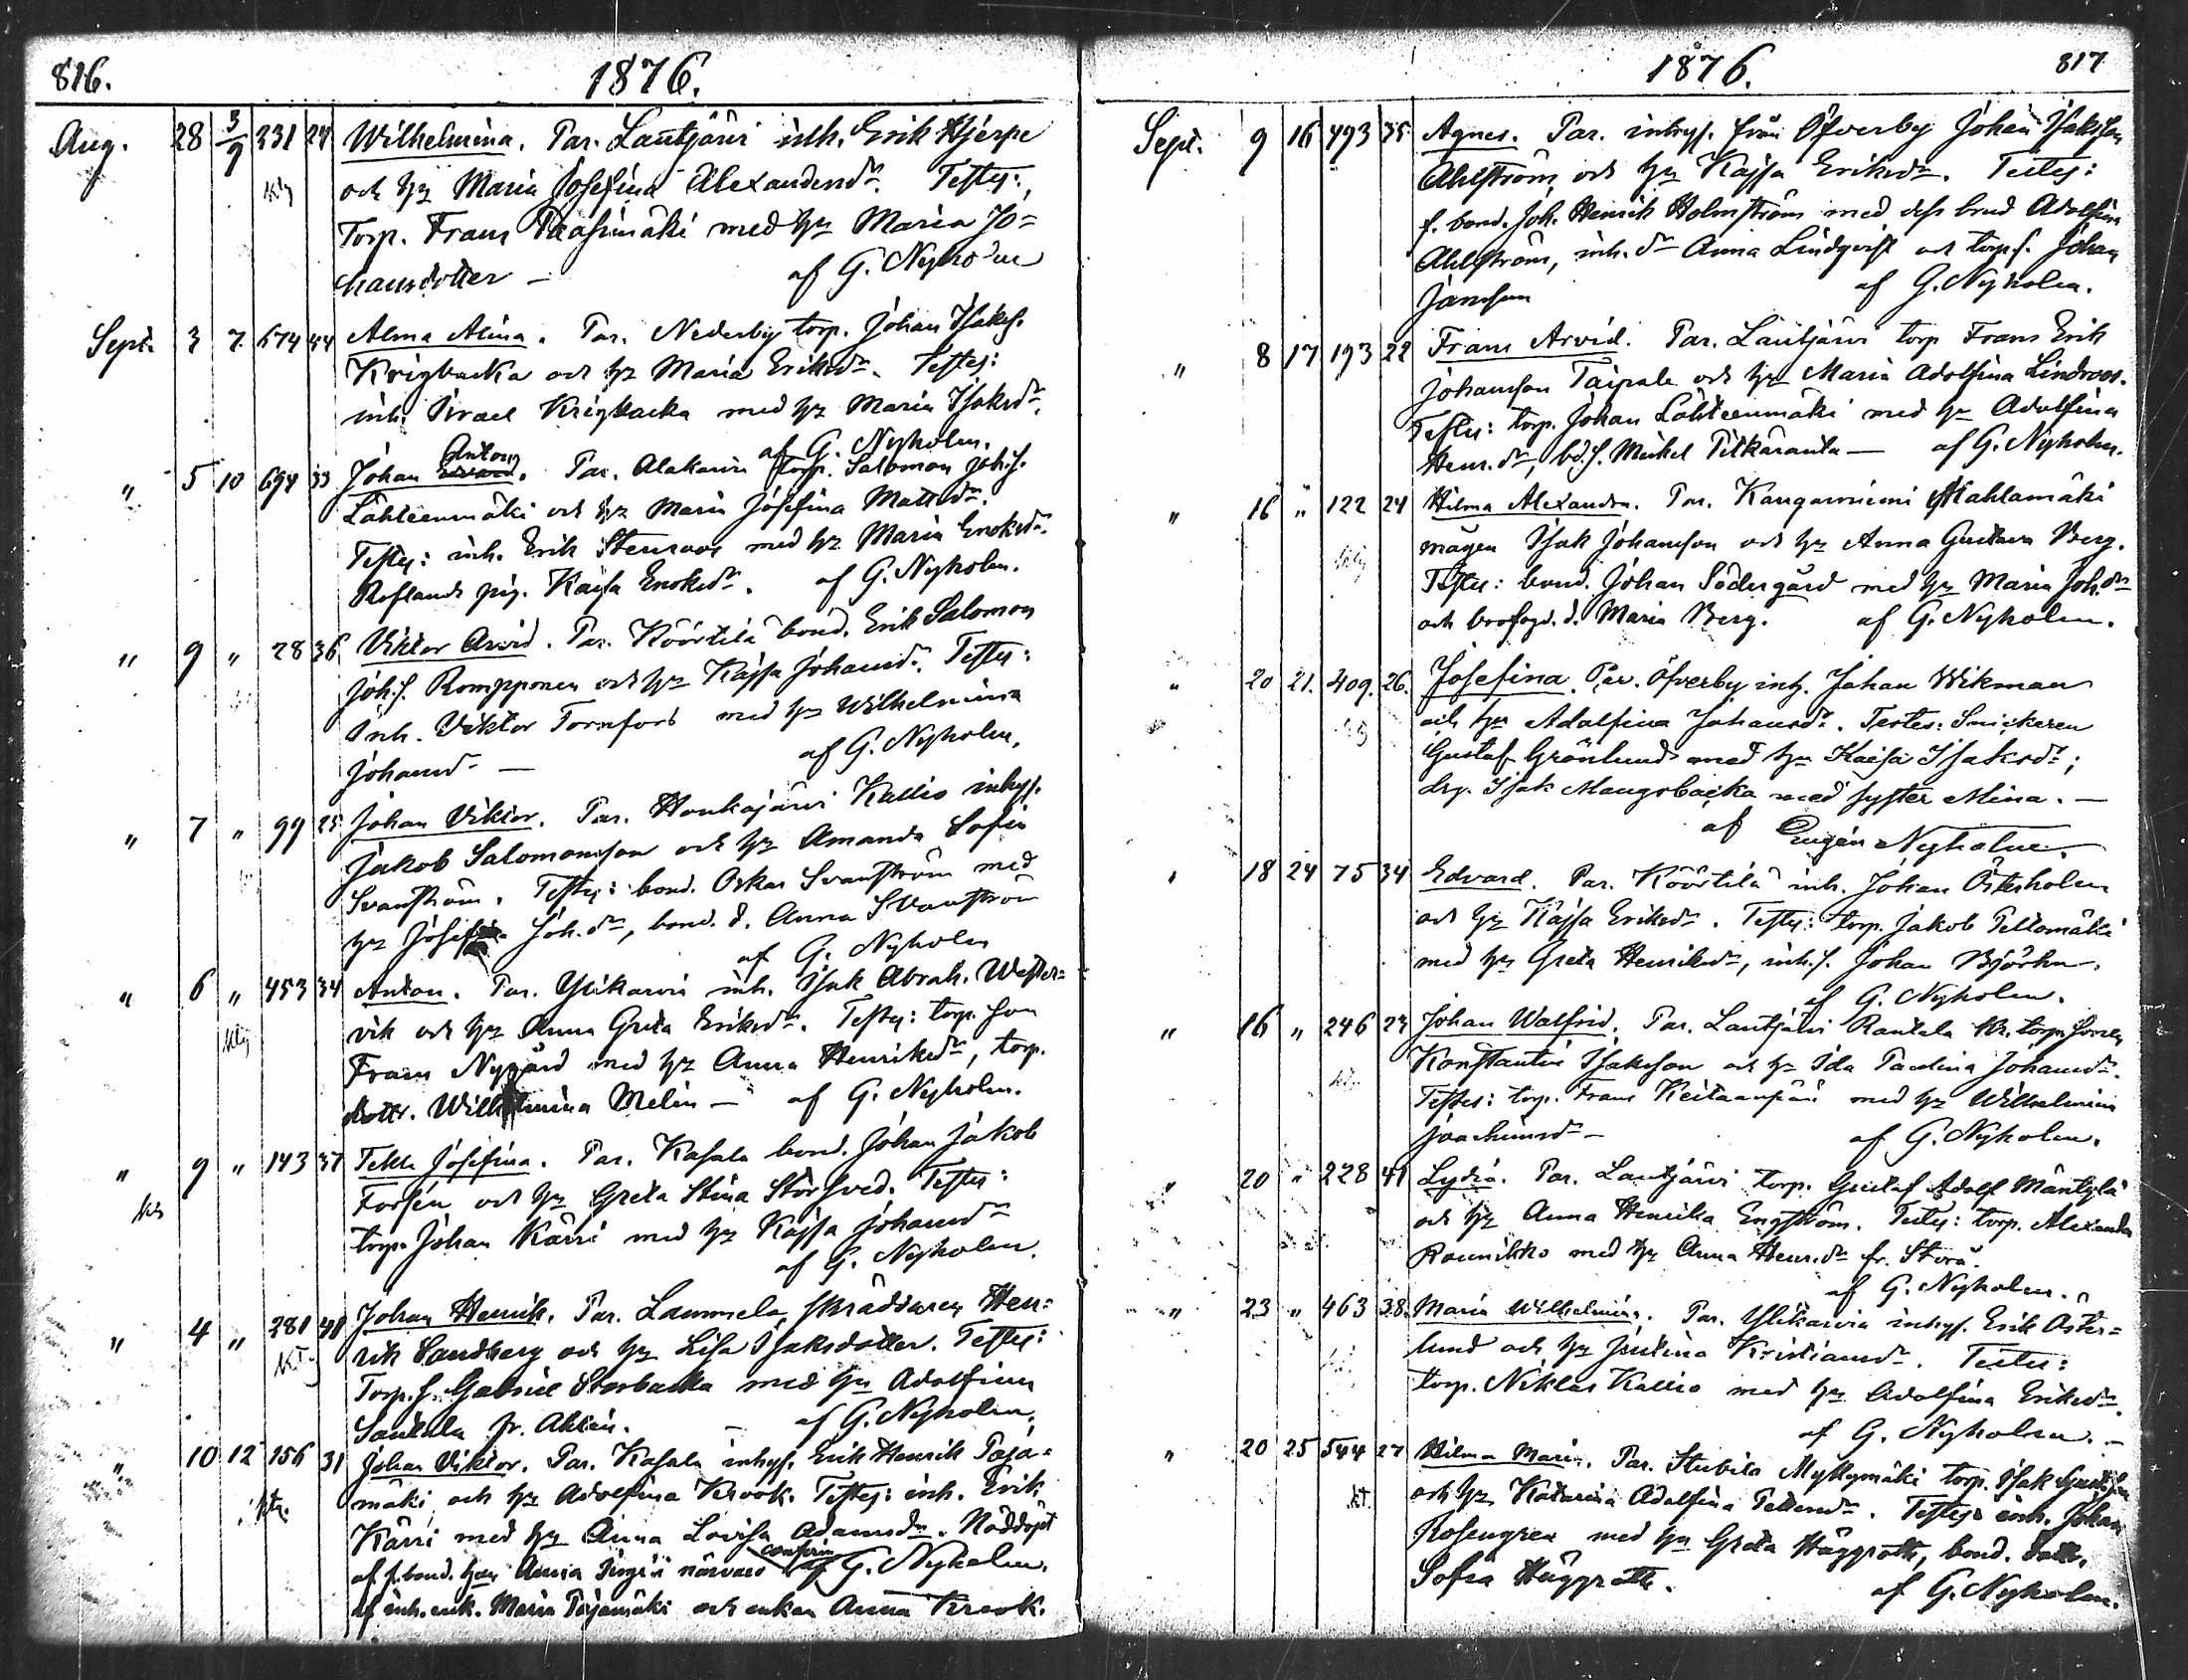 816.
1876.
Aug. 28 3/9 231 27 Wilhelmina. Par. Lautjärvi inh. Erik Hjerpe
och hu Maria Josefina Alexandersdr. Testes:
Torp. Frans med hu Maria Jo=
hansdotter — af G. Nyholm
Sept. 3 7. 674 44 Alma Alina. Par. Nederby torp. Johan Isaks.
Krigbacka och hu Maria Eriksdr. Testes:
inh. Israel Krigbacka med hu Maria Isaksdr.
af G. Nyholm.
" 5 10 694 33 Johan Anton. Par. Alakarvi torp. Salomon Joh.s.
Lähteenmäki och hu Maria Josefina Mattsdr.
Testes: inh. Erik Stenroos med hu Maria Enoksdr.
Roflands pig. Kaisa Enoksdr. af G. Nyholm.
" 9 " 28 36 Viktor Arvid. Par. Köörtilä bond. Erik Salomon
Joh.s. Rompponen och hu Kajsa Johansdr. Testes:
Inh. Viktor Tornfors med hu Wilhelmina
Johansdr — af G. Nyholm.
" 7 " 99 25 Johan Viktor. Par. Honkajärvi Kallio inhys.
Jakob Salomonsson och hu Amanda Sofia
Svanström. Testes: bond. Oskar Svanström med
hu Josefina Joh.dr, bond. d. Anna Svanström
af G. Nyholm
" 6 " 453 34 Anton. Par. Ylikarvia inh. Isak Abrah. Wester=
vik och hu Anna Greta Eriksdr. Testes: torp. son
Frans Nygård med hu Anna Henriksdr, torp.
dottr. Wilhelmina Melin — af G. Nyholm.
" 9 " 143 37 Tekla Josefina. Par. Kasala bond. Johan Jakob
Forsén och hu Greta Stina Storsved. Testes:
torp. Johan Kärri med hu Kajsa Johansdr
af G. Nyholm.
" 4 " 281 40 Johan Henrik. Par. Lammela, skräddaren Hen=
rik Sandberg och hu Lisa Isaksdotter. Testes:
Torp.s. Gabriel Storbacka med hu Adolfina
Santala fr. Ahlais. — af G. Nyholm.
" 10 12 156 31 Johan Viktor. Par. Kasala inhys. Erik Henrik Paja=
mäki och hu Adolfina Krook. Testes: inh. Erik
Kärri med hu Anna Lovisa Adamsdr. Nöddöpt
af f. bond. hu Anna närvaro confirm af G. Nyholm.
af inh. enk. Maria Pajamäki och enkan Anna Krook.
1876.
817
Sept. 9 16 493 35 Agnes. Par. inhys. från Öfverby Johan Isaksson
Ahlström och hu Kajsa Eriksdr. Testes:
f. bond. Joh. Henrik Holmström med dess brud Adolfina
Ahlström, inh. dr Anna Lindqvist och torp.s. Johan
Jansson af G. Nyholm.
" 8 17 193 22 Frans Arvid. Par. Lautjärvi torp Frans Erik
Johansson Taipale och hu Maria Adolfina Lindroos.
Testes: torp. Johan Lähteenmäki med hu Adolfina
Henr.dr, bd.s. Mickel Pitkäranta — af G. Nyholm.
" 16 " 122 24 Hilma Alexandra. Par. Kangasniemi Mahlamäki
mågen Isak Johansson och hu Anna Gustava Berg.
Testes: bond. Johan Södergård med hu Maria Joh.dr
och brofogd. d. Maria Berg. af G. Nyholm.
" 20 21. 409. 26. Josefina. Par. Öfverby inh. Johan Wikman
och hu Adolfina Johansdr. Testes: Snickeren
Gustaf Grönlund med hu Kaisa Isaksdr;
drg. Isak Mangsbacka med syster Mina. —
af Eugén Nyholm.
" 18 24 75 34 Edvard. Par. Köörtilä inh. Johan Österholm
och hu Kajsa Eriksdr. Testes: torp. Jakob Peltomäki
med hu Greta Henriksdr, inh.s. Johan Björhn.
af G. Nyholm.
" 16 " 246 27 Johan Walfrid. Par. Lautjärvi Rantala torp. sonen
Konstantin Isaksson och hu Ida Paulina Johansdr.
Testes: torp. Frans Keitaanpää med hu Wilhelmina
Joachimsdr — af G. Nyholm.
" 20 " 228 41 Lydia. Par. Lautjärvi torp. Gustaf Adolf Mäntylä
och hu Anna Henrika Engström. Testes: torp. Alexander
Rounikko med hu Anna Henr.dr fr. Storå.
af G. Nyholm.
" 23 " 463 38. Maria Wilhelmina. Par. Ylikarvia inhys. Erik Öster=
lund och hu Justina Kristiansdr. Testes:
torp. Niklas Kallio med hu Adolfina Eriksdr.
af G. Nyholm. —
" 20 25 544 27 Hilma Maria. Par. Stubila Myllymäki torp. Isak
och hu Katarina Adolfina Pettersdr. Testes: inh. Johan
Rosengren med hu Greta Häggroth, bond. dottr.
Sofia Häggroth. af G. Nyholm.